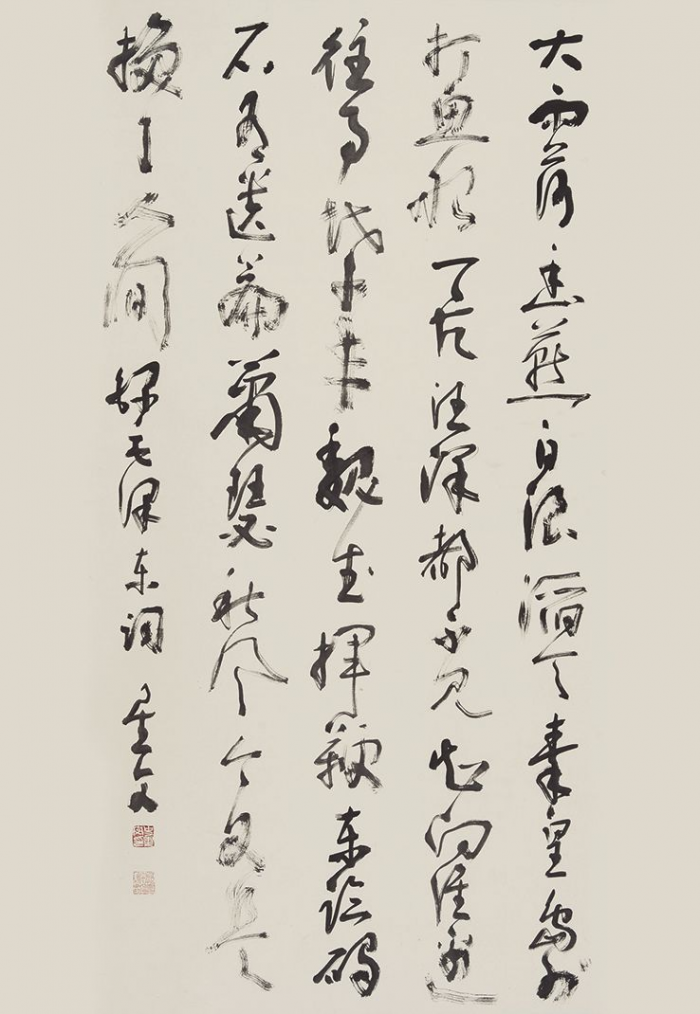 大雨落幽燕白浪滔天秦皇岛外
打鱼船一片汪洋都不见知向谁边
往事越千年魏武揮鞭东临碣
石有遗篇萧瑟秋风今又是
换了人间录毛泽东词